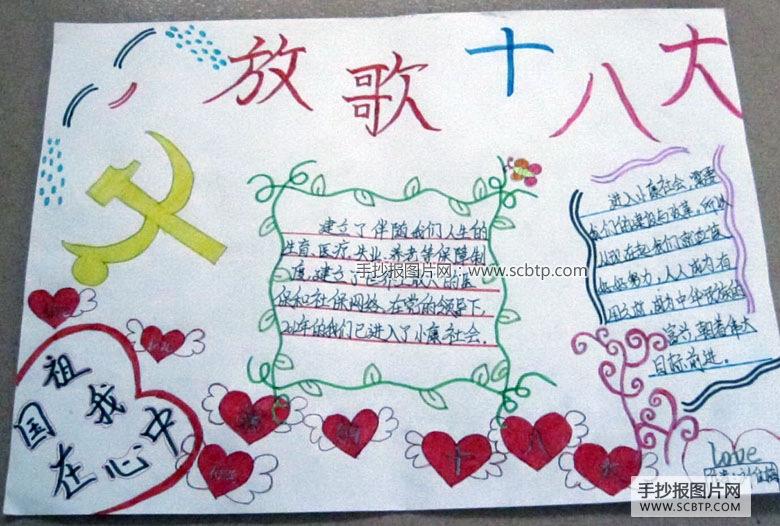 放歌十八大
建立了伴随我们人生的
生育、医疗、失业、养老等保障制
度,建立了世界上最大的医
保和社保网络。在党的领导下,
的我们已进入了小康社会。
手抄报图片网:www.scbtp.com
进入小康社会,需要
我们的建设与改革,所以
从现在起我们就应该
好好努力,人人成为有
用之才,成为中华民族的
富兴朝着伟大
目标前进。
祖国
我
在心中
Love
Love
Love
十八大
Love
手抄报图片网
WWW.SCBTP.COM